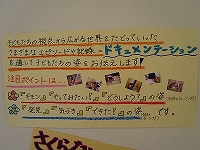 子どもたちの視点から広がる世界をたどっていった
さまざまなエピソードや記録…ドキュメンテーション
を通して子どもたちの姿をお伝えします!
注目ポイントは…
『ギモン』『やってみたい!』『どうしよう?』の姿
『発見』『気づき』『できた!』の姿 です。
さくら